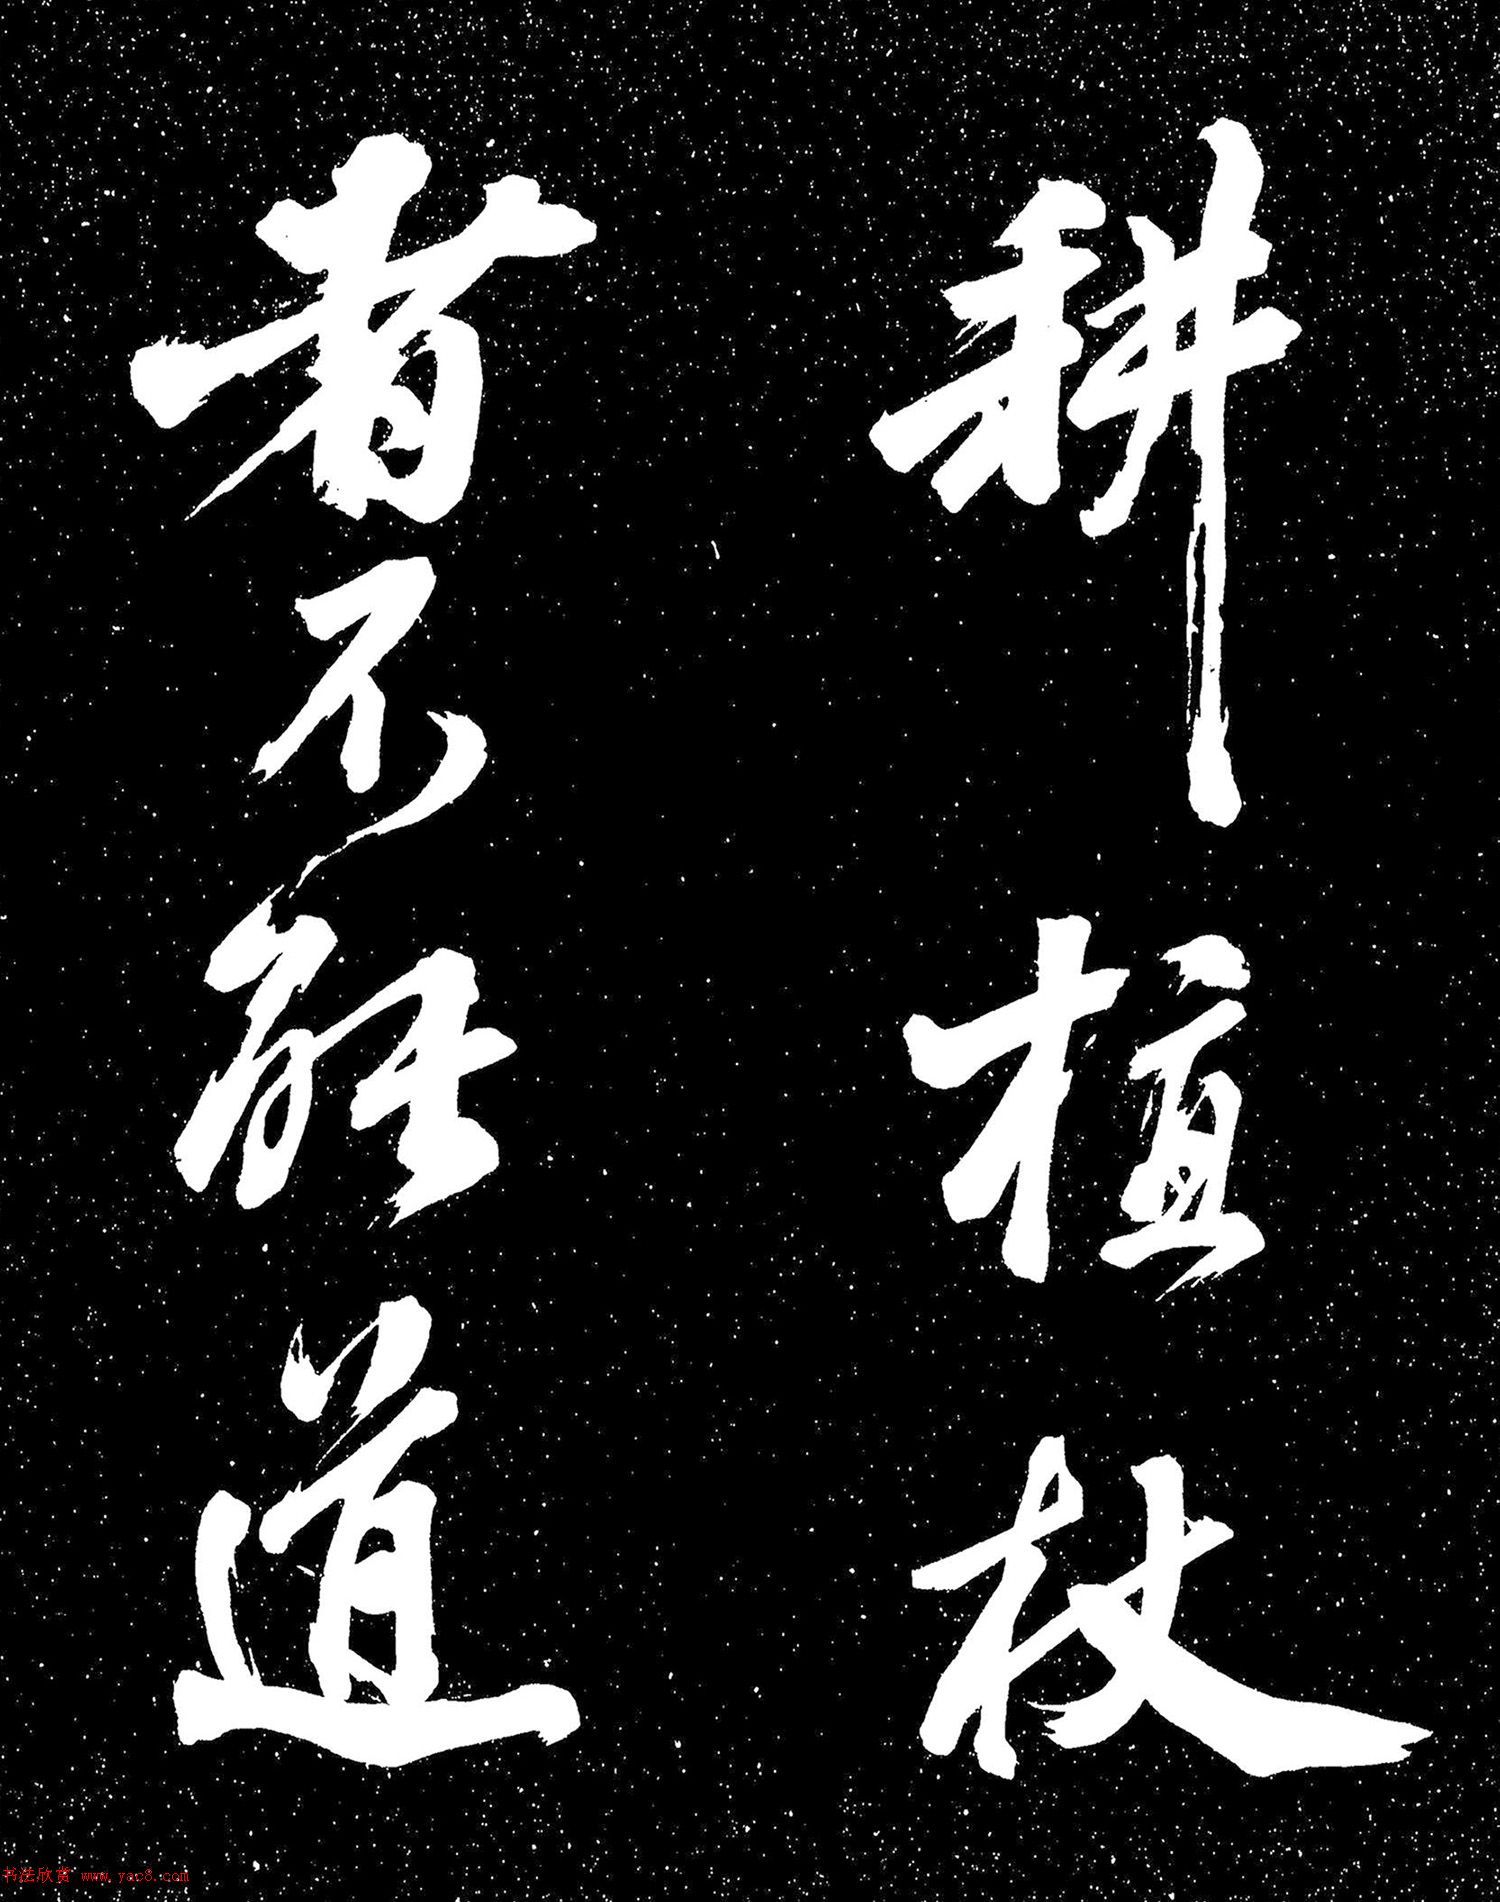 耕植杖
者不能道
书法欣赏 www.yac8.com